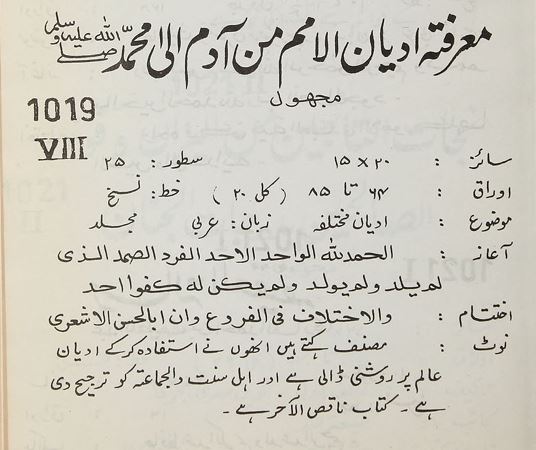 معرفتہ ادیان الامم من آدم الی امحمد صلی اللہ علیہ وسلم
مجہول
1019
VIII
سائز : ۲۰ x ۱۵ سطور : ۲۵
اوراق : ۶۴ تا ۸۵ (کل ۲۰) خط : نسخ
موضوع : ادیان مختلفہ زبان : عربی مجلد
آغاز : الحمدللہ الواحد الاحد الفرد الصمد الذی
لم یلد ولم یولد ولم یکن لہ کفوا احد
اختتام : والاختلاف فی الفروع وان ابالحسن الاشعری
نوٹ : مصنف کہتے ہیں انھوں نے استفادہ کرکے ادیان
عالم پر روشنی ڈالی ہے اور اہل سنت والجماعتہ کو ترجیح دی
ہے ۔ کتاب ناقص الآخر ہے ۔